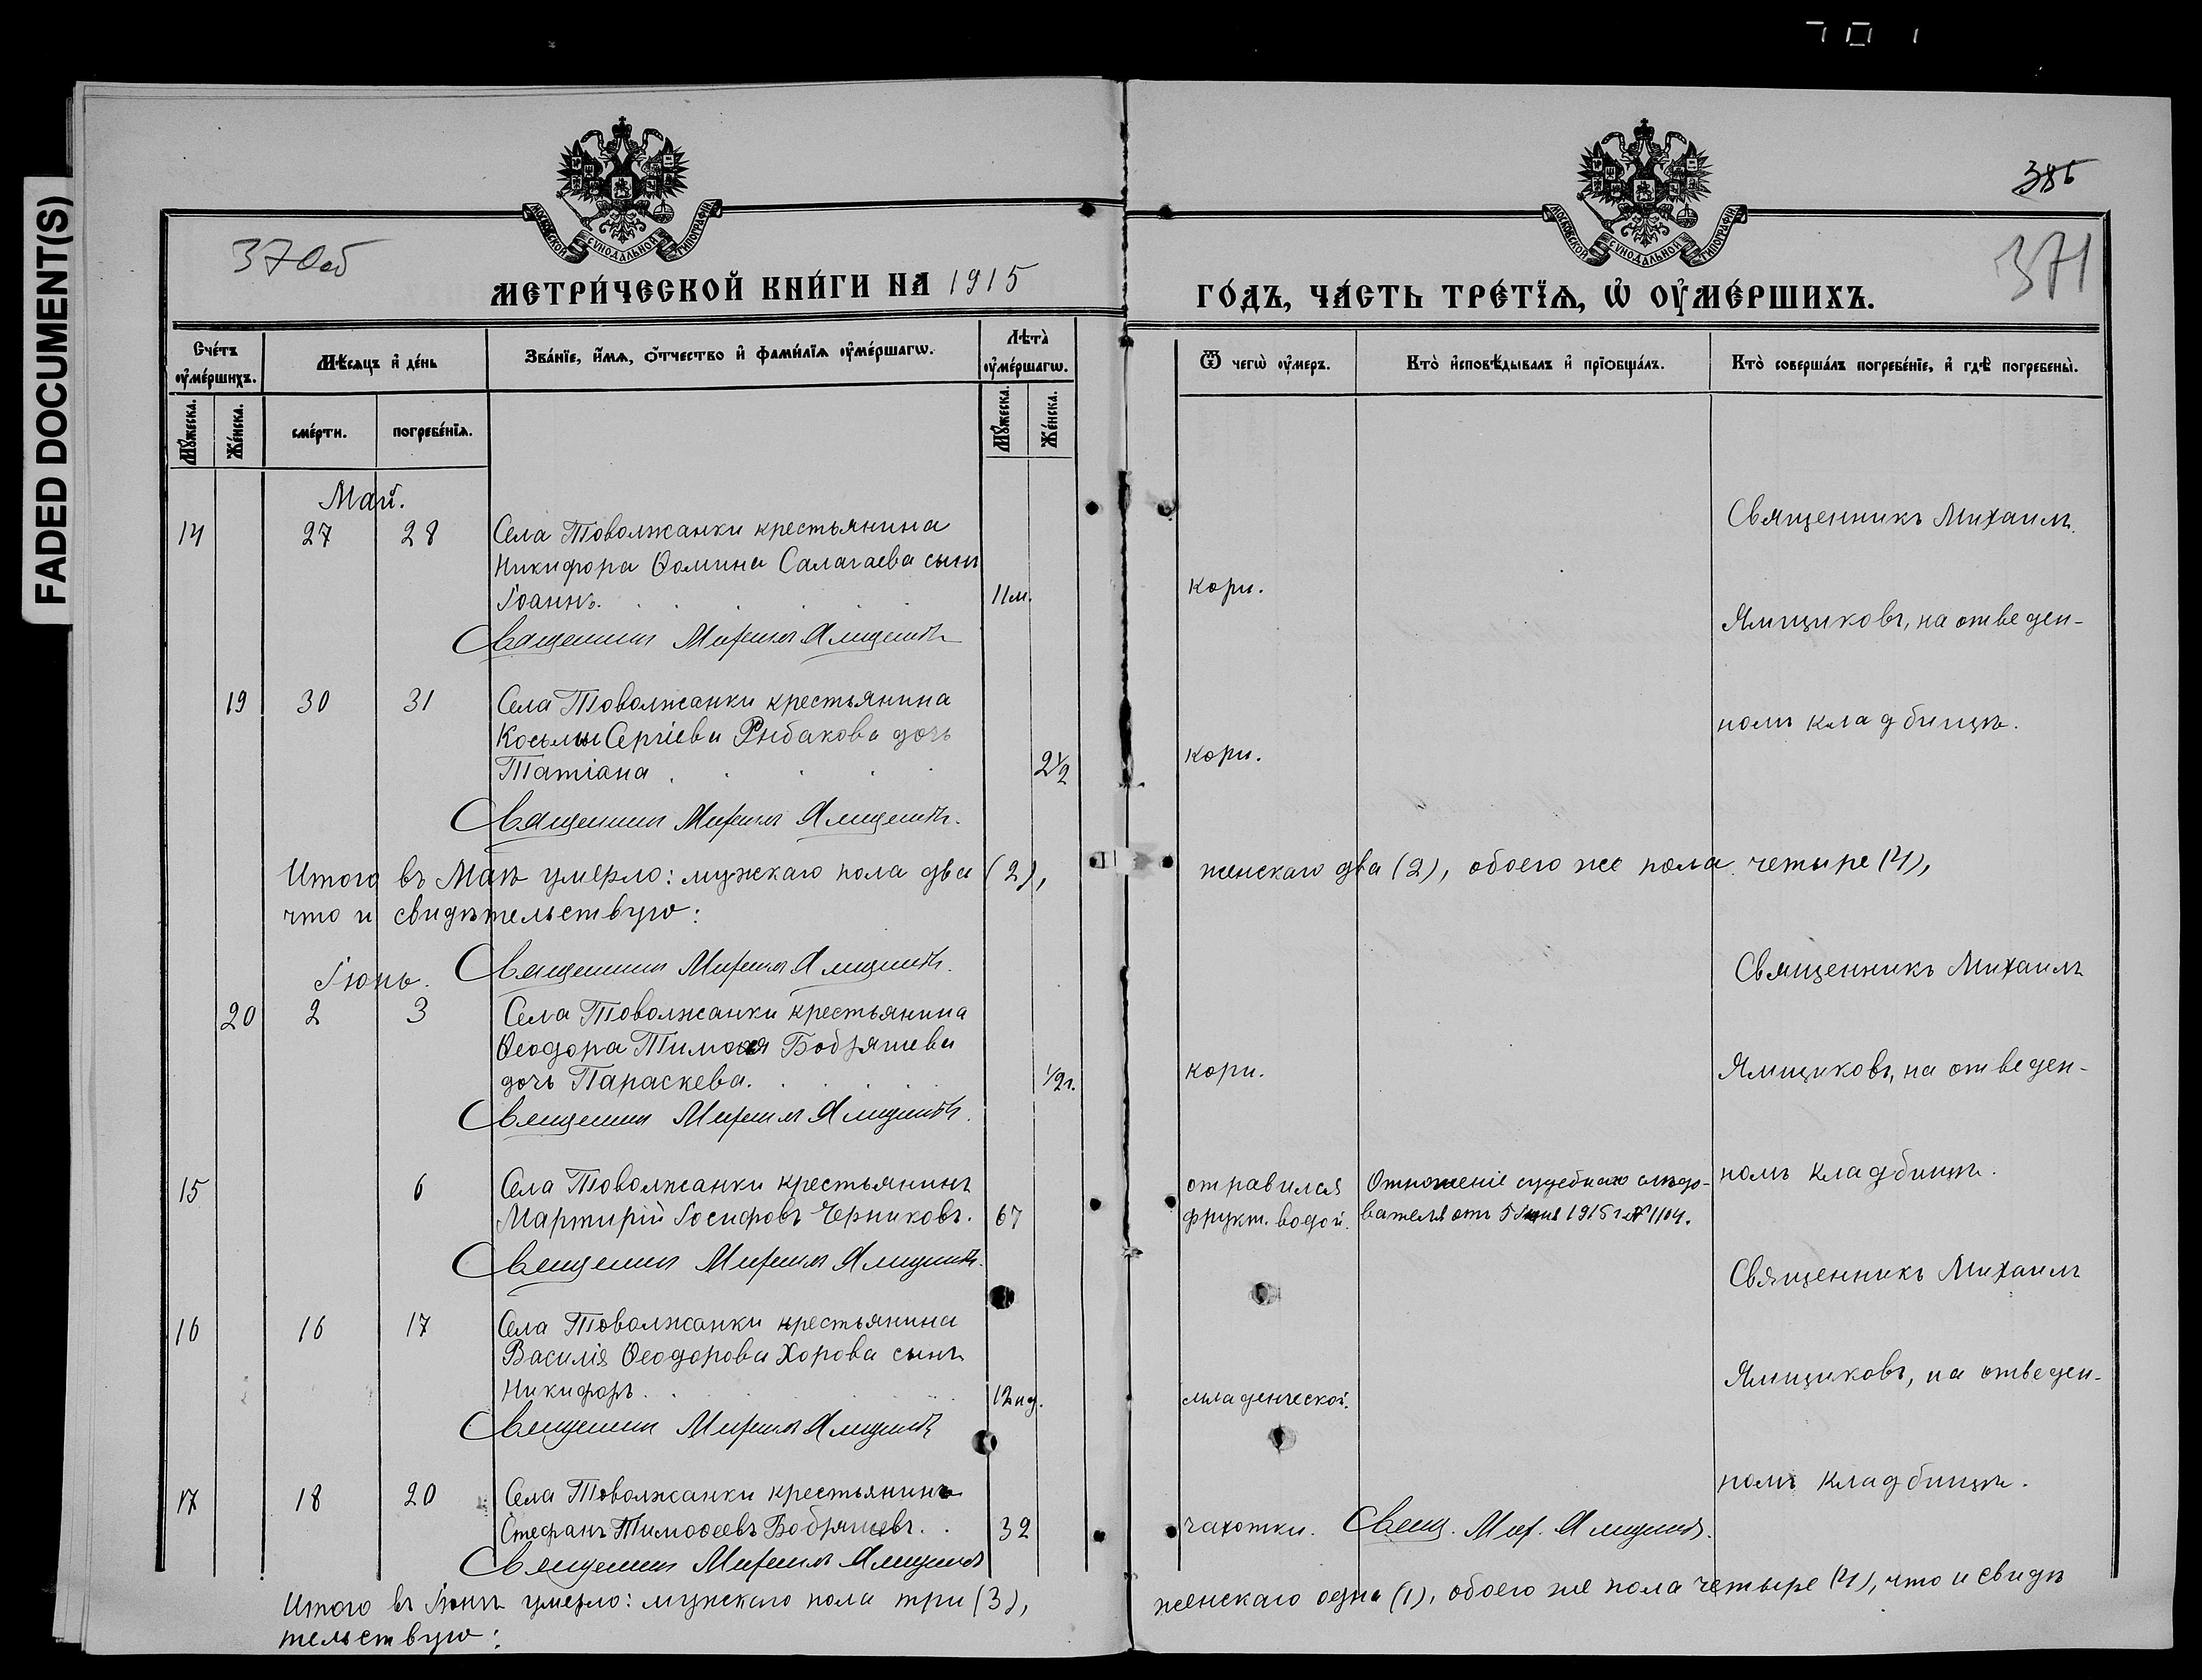 FADED DOCUMENT(S)
370об
МОСКОВСКОЙ СѴНОДАЛЬНОЙ ТИПОГРАФІИ
МЕТРИ́ЧЕСКОЙ КНИ́ГИ НА 1915
Сче́тъ ᲂу҆ме́ршихъ.
Мѣ́сяцъ и҆ де́нь
Зва́нїе, и҆́мѧ, ѻ҆́тчество и҆ фами́лїѧ ᲂу҆ме́ршагѡ.
Лѣ́та ᲂу҆ме́ршагѡ.
Мꙋ́жеска.
Же́нска.
сме́рти.
погребе́нїѧ.
Мꙋ́жеска.
Же́нска.
Май.
14 27 28 Села Товолжанки крестьянина
Никифора Ѳомина Салагаева сынъ
Іоаннъ. 11м.
Священникъ Михаилъ Ямщиковъ
19 30 31 Села Товолжанки крестьянина
Косьмы Сергіева Рыбакова дочь
Татіана 2½
Священникъ Михаилъ Ямщиковъ.
Итого въ Маѣ умерло: мужскаго пола два (2),
что и свидѣтельствую:
Священникъ Михаилъ Ямщиковъ.
Іюнь.
20 2 3 Села Товолжанки крестьянина
Ѳеодора Тимоѳея Бобряшева
дочь Параскева. ½г.
Священникъ Михаилъ Ямщиковъ.
15 6 Села Товолжанки крестьянинъ
Мартирій Іосифовъ Черниковъ. 67
Священникъ Михаилъ Ямщиковъ.
16 16 17 Села Товолжанки крестьянина
Василія Ѳеодорова Хорова сынъ
Никифоръ. 12нд.
Священникъ Михаилъ Ямщиковъ
17 18 20 Села Товолжанки крестьянинъ
Стефанъ Тимоѳеевъ Бобряшевъ. 32
Священникъ Михаилъ Ямщиковъ
Итого въ Іюнѣ умерло: мужскаго пола три (3),
тельствую:
386
371
МОСКОВСКОЙ СѴНОДАЛЬНОЙ ТИПОГРАФІИ
ГО́ДЪ, ЧА́СТЬ ТРЕ́ТЇѦ, Ѡ҆ ОУ҆МЕ́РШИХЪ.
Ѿ чегѡ̀ ᲂу҆́меръ.
Кто̀ и҆сповѣ́дывалъ и҆ прїѻбща́лъ.
Кто̀ соверша́лъ погребе́нїе, и҆ гдѣ̀ погребены̀.
Священникъ Михаилъ
кори.
Ямщиковъ, на отведен-
номъ кладбищѣ.
кори.
женскаго два (2), обоего же пола четыре (4),
Священникъ Михаилъ
кори.
Ямщиковъ, на отведен-
номъ кладбищѣ.
отравился
фрукт. водой.
Отношеніе судебнаго слѣдо-
вателя отъ 5 Іюня 1915 г. № 1104.
Священникъ Михаилъ
Ямщиковъ, на отведен-
младенческой.
номъ кладбищѣ.
чахотки. Свящ. Мих. Ямщиковъ.
женскаго одна (1), обоего же пола четыре (4), что и свидѣ